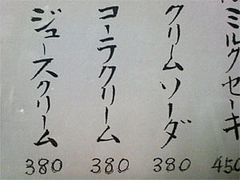 ミルクセーキ
450
クリームソーダ
380
コーラクリーム
380
ジュースクリーム
380